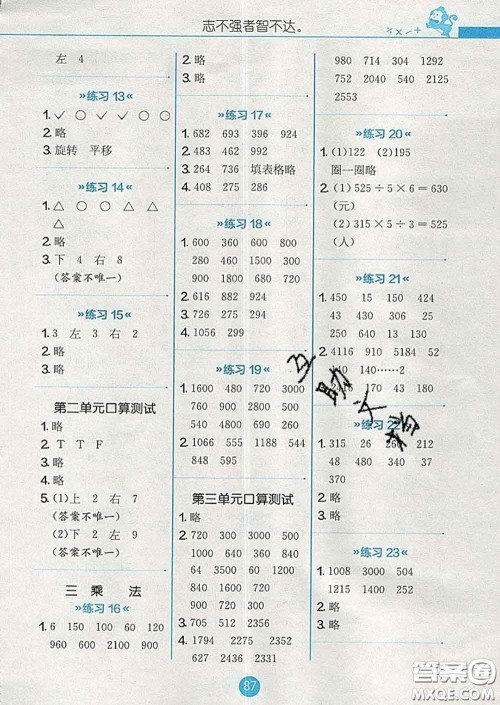 志不强者智不达。
× × − +
左 4
»练习 13«
1. ✓ ○ ✓ ✓ ✓ ○ ○
2. 略
3. 旋转 平移
»练习 14«
1. △ ○ ○ △ △ ○ ○
△
2. 略
3. 下 4 右 8
(答案不唯一)
»练习 15«
1. 3 2 3 2
2. 略
3. 略
第二单元口算测试
1. 略
2. T T F
3. 略
4. 略
5. (1)上 2 右 7
(答案不唯一)
(2)下 2 左 9
(答案不唯一)
三 乘 法
»练习 16«
1. 6 150 100 60 120
960 600 2100 900
2. 略
3. 略
»练习 17«
1. 682 693 396 924
2. 483 462 992
3. 264 736 填表格略
4. 408 275 286
»练习 18«
1. 600 360 600 800
280 450 1500 900
350 480 1800 300
2. 616 882 924
3. 726 275 294
4. 1056 299
»练习 19«
1. 1600 480 720 900
360 5600 800 2000
540 4800 690
2. 1000 1155 1888 544
848 595
第三单元口算测试
1. 略
2. 720 1000 300 630
800 450 3200 540
4200 1600 900 900
640 1800 2400 600
3. 735 506 651
4. 1794 2275 2751
952 2436 2331
980 714 304 858
1752 2040 520 3182
2553
»练习 20«
1. (1)122 (2)195
圈一圈略
2. (1)525÷5×6=630
(元)
(2)315×5÷3=525
(人)
»练习 21«
1. 450 15 150 424
30 450 11 200
250 630 130
2. 4116 910 5184
40 140……2
416 170 43 180
»练习 22«
1. 315 26 260 212
48 480 340 37
370
2. 略
3. 略
»练习 23«
1. 1008 3000 504
1215 1400 1252
2. 略
3. 略
互助文档
87
答案圈
MXQE.COM